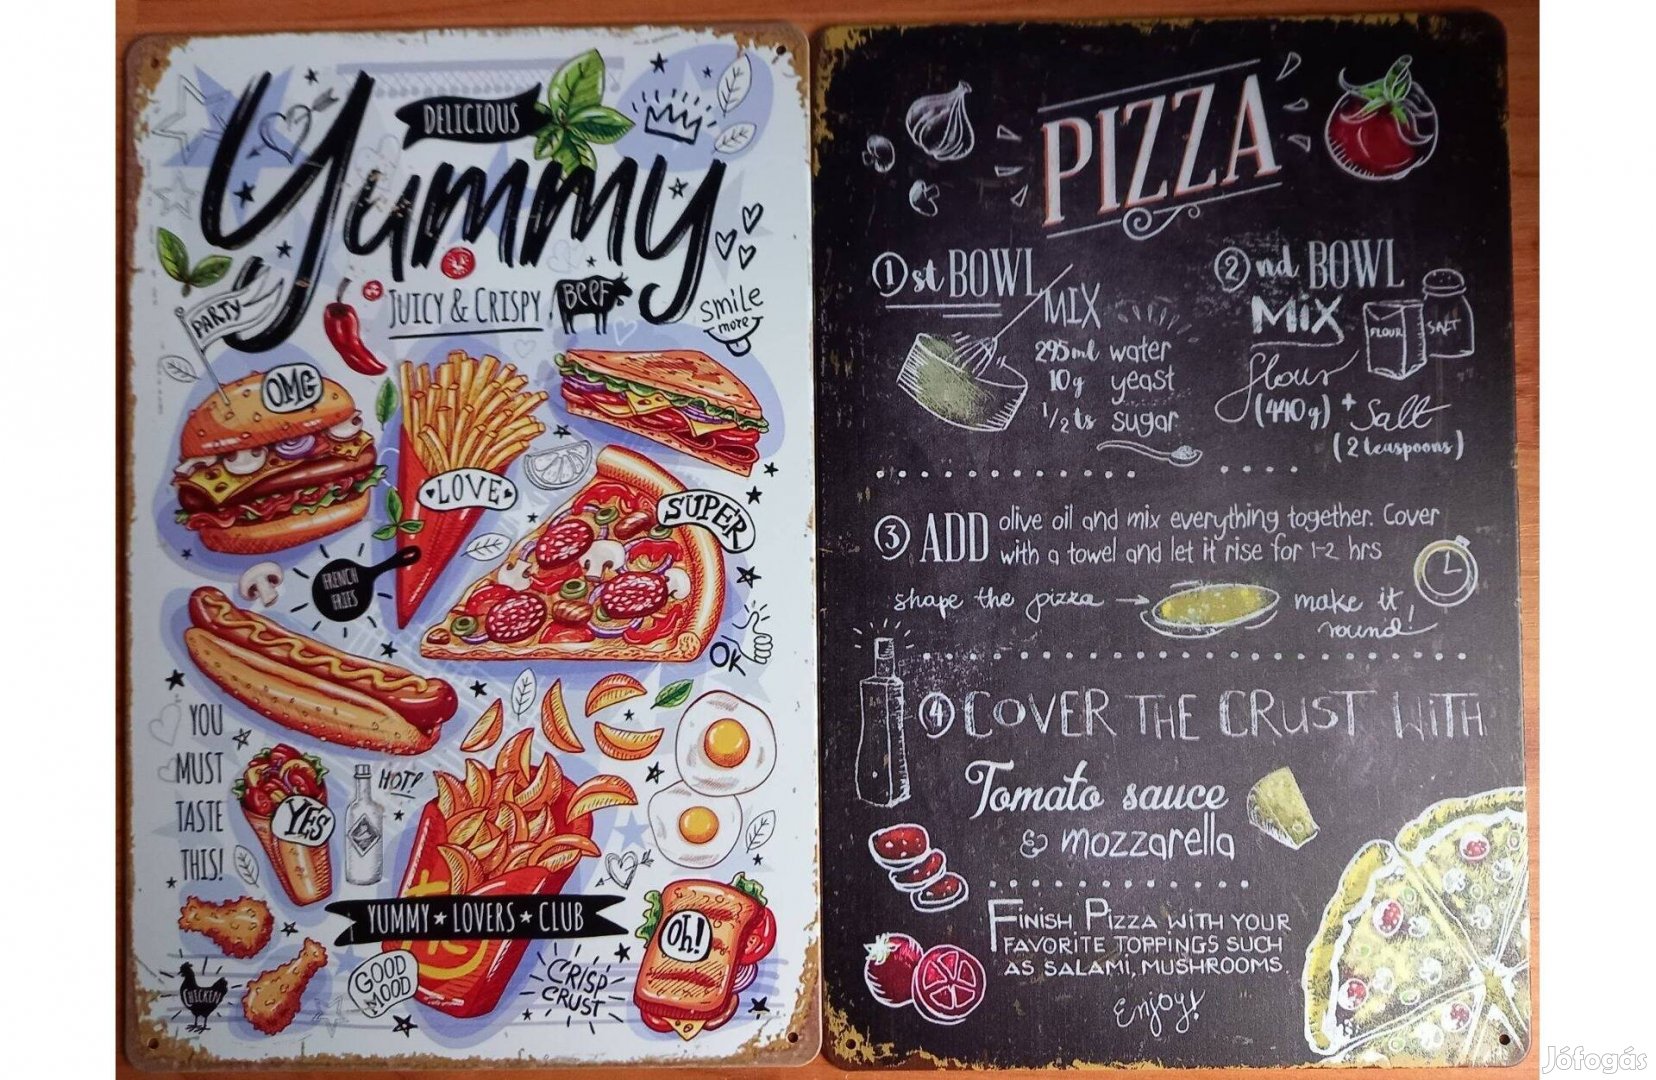 DELICIOUS
Yummy
JUICY & CRISPY
BEEF
PARTY
Smile
more
OMG
LOVE
SUPER
FRENCH
FRIES
OK
YOU
MUST
TASTE
THIS!
HOT!
YES
YUMMY ★ LOVERS ★ CLUB
Oh!
GOOD
MOOD
CRISP
CRUST
CHICKEN
PIZZA
1st BOWL
MIX
295ml water
10g yeast
1/2 ts sugar
2nd BOWL
MiX
FLOUR
SALT
flour
(440g) + Salt
(2 teaspoons)
3 ADD olive oil and mix everything together. Cover
with a towel and let it rise for 1-2 hrs
shape the pizza → make it
round!
4 COVER THE CRUST WiTH
Tomato sauce
& mozzarella
FINISH PIZZA WiTH YOUR
FAVORITE TOPPINGS SUCH
AS SALAMI, MUSHROOMS.
Enjoy!
Jófogás